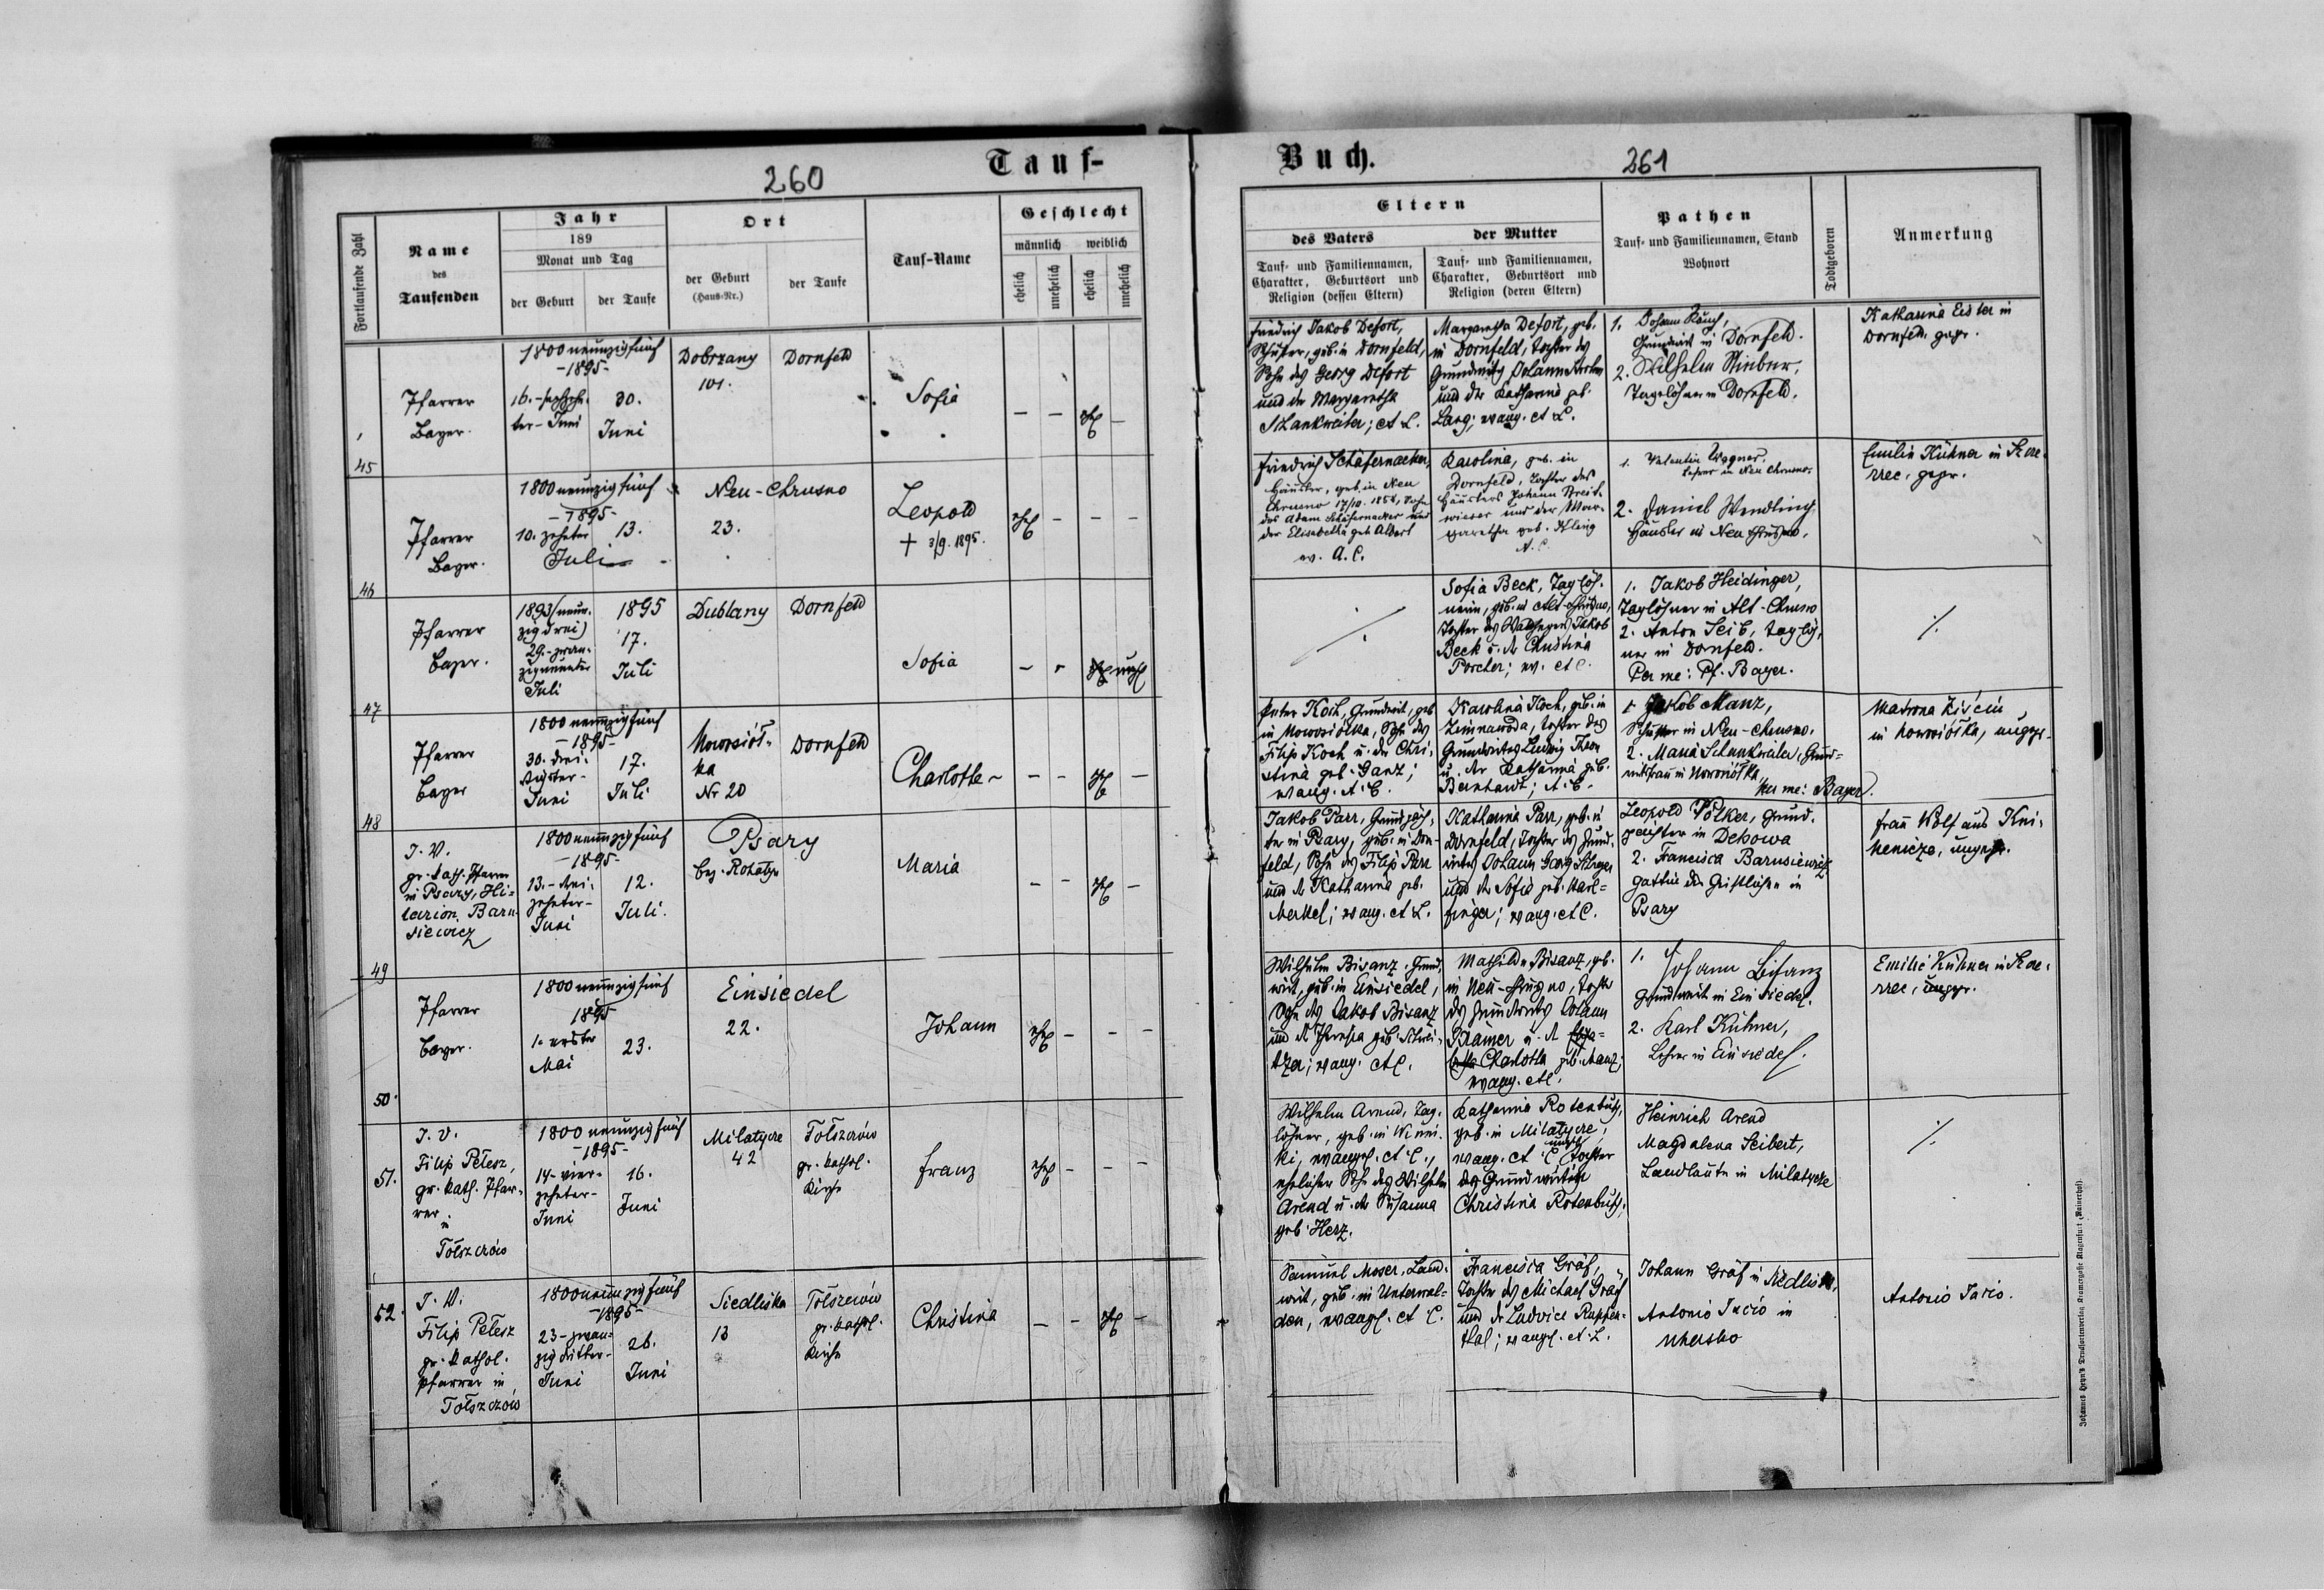 260
Tauf-
Buch.
261
Fortlaufende Zahl
Name
des
Taufenden
Jahr
189
Monat und Tag
der Geburt
der Taufe
Ort
der Geburt
(Haus-Nr.)
der Taufe
Tauf-Name
Geschlecht
männlich
weiblich
ehelich
unehelich
ehelich
unehelich
Eltern
des Vaters
der Mutter
Tauf- und Familiennamen,
Charakter, Geburtsort und
Religion (dessen Eltern)
Tauf- und Familiennamen,
Charakter, Geburtsort und
Religion (deren Eltern)
Pathen
Tauf- und Familiennamen, Stand
Wohnort
Todtgeboren
Anmerkung
45
Pfarrer
Bayer.
1800 neunzig fünf
-1895-
16.-sechzehn-
ter-Juni
30.
Juni
Dobrzany
101.
Dornfeld
Sofia
- - ehel -
Friedrich Jakob Defort,
Schuster, geb. in Dornfeld,
Sohn des Georg Defort
und der Margaretha
Schankweiler; A. C.
Margaretha Defort, geb.
in Dornfeld, Tochter des
Grundwirts Johann
und der Katharina geb.
Lang; evang. A. C.
1. Johann
Grundwirt in Dornfeld.
2. Wilhelm
Tagelöhner in Dornfeld.
Katharina Eister in
Dornfeld, gepr.
46
Pfarrer
Bayer.
1800 neunzig fünf
-1895-
10. zehnter
Juli
13.
Neu-Chrusno
23.
Leopold
† 3/9. 1895.
ehel - - -
Friedrich Schäfernacker,
Häusler, geb. in Neu
Chrusno 17/10. 1854, Sohn
des Adam Schäfernacker und
der Elisabetha geb. Albert
ev. A. C.
Karolina, geb. in
Dornfeld, Tochter des
Häuslers Johann Streit-
wieser und der Mar-
garetha geb. Kling
A. C.
1. Valentin Wagner,
Lehrer in Neu Chrusno.
2. Daniel Wendling,
Häusler in Neu Chrusno.
Emilie Kühner in
gepr.
47
Pfarrer
Bayer.
1893 (neun-
zig drei)
29.-zwan-
zigneunter
Juli
1895
17.
Juli
Dublany
Dornfeld
Sofia
- - unehel
./.
Sofia Beck, Taglöh-
nerin, geb. in Alt-Chrusno,
Tochter des Jakob
Beck u. d. Christina
Porcher; ev. A. C.
1. Jakob Heidinger,
Taglöhner in Alt-Chrusno
2. Anton Seib, Taglöh-
ner in Dornfeld.
Per me: Pf. Bayer.
./.
48
Pfarrer
Bayer
1800 neunzig fünf
-1895-
30. drei-
ssigster-
Juni
17.
Juli
Nowosiół-
ka
Nr 20
Dornfeld
Charlotte
- - ehel -
Peter Koch, Grundwirt, geb.
in Nowosiółka, Sohn des
Filip Koch u. der Chri-
stina geb. Ganz;
evang. A. C.
Karolina Koch, geb. in
Zimnawoda, Tochter des
Grundwirtes Ludwig
u. der Katharina geb.
Bernhardt; A. C.
1. Jakob Manz,
Schuster in Neu-Chrusno.
2. Maria Schankweiler, Grund-
wirtsfrau in Nowosiółka,
Per me: Bayer.
Matrona
in Nowosiółka, ungepr.
49
J. V.
gr. kath. Pfarrer
in Psary, Hi-
larion Baru-
siewicz
1800 neunzig fünf
-1895-
13.-drei-
zehnter-
Juni
12.
Juli.
Psary
bez. Rohatyn
Maria
- - ehel -
Jakob Parr, Grundpäch-
ter in Psary, geb. in Dorn-
feld, Sohn des Filip Parr
und d. Katharina geb.
Merkel; evang. A. C.
Katharina Parr, geb. in
Dornfeld, Tochter des Grund-
wirtes Johann Georg
und d. Sofia geb. Karl-
finger; evang. A. C.
Leopold Völker, Grund-
pächter in Dehowa
2. Francisca Barusiewicz
Gattin des Geistlichen in
Psary
Frau Wolf aus Kni-
henicze, ungepr.
50.
Pfarrer
Bayer.
1800 neunzig fünf
1895
1. erster
Mai
23.
Einsiedel
22.
Johann
ehel - - -
Wilhelm Bisanz, Grund-
wirt, geb. in Einsiedel,
Sohn des Jakob Bisanz
und d. Theresia geb. Schwei-
tzer; evang. A. C.
Mathilde Bisanz, geb.
in Neu-Chrusno, Tochter
des Grundwirts Johann
Brämer u. d.
Charlotte geb. Manz;
evang. A. C.
1. Johann Bisanz
Grundwirt in Einsiedel.
2. Karl Kühner,
Lehrer in Einsiedel.
Emilie Kühner in
ungepr.
51.
J. V.
Filip Pełesz,
gr. kath. Pfar-
rer
in
Tołszczów
1800 neunzig fünf
-1895-
14-vier-
zehnter-
Juni
16.
Juni
Milatycze
42
Tołszczów
gr. kathol.
Kirche
Franz
ehel - - -
Wilhelm Arend, Tag-
löhner, geb. in Winni-
ki, evangel. A. C.,
ehelicher Sohn des Wilhelm
Arend u. der Susanna
geb. Herz.
Katharina Rotenbusch,
geb. in Milatycze,
evang. A. C. unehel Tochter
der Grundwirtin
Christina Rotenbusch.
Heinrich Arend
Magdalena Seibert,
Landleute in Milatycze
./.
52.
J. V.
Filip Pełesz
gr. kathol.
Pfarrer in
Tołszczów
1800 neunzig fünf
-1895-
23-zwan-
zigdritter-
Juni
26.
Juni
Siedliska
13
Tołszczów
gr. kathol.
Kirche
Christina
- - ehel -
Samuel Moser, Land-
wirt, geb. in Unterwal-
den, evangel. A. C.
Francisca Gräf,
Tochter des Michael Gräf
und der Ludvica Rappen-
thal; evangel. A. C.
Johann Gräf in Siedliska,
Antonio in
Antonio